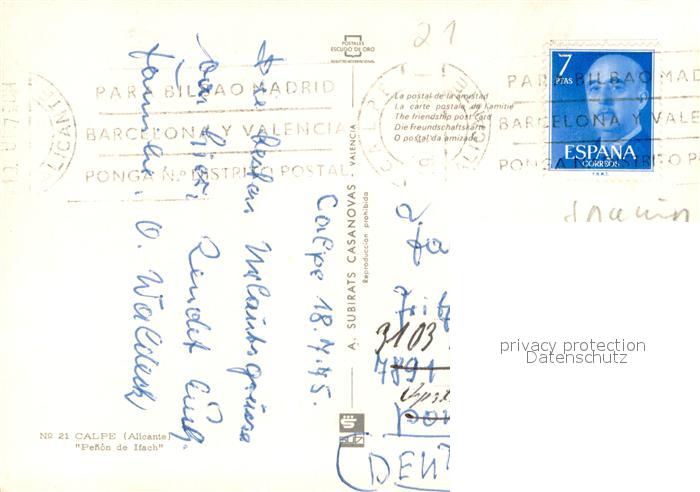 POSTALES
ESCUDO DE ORO
21
PARA BILBAO MADRID
BARCELONA Y VALENCIA
PONGA N.º DISTRITO POSTAL
ALICANTE
La postal de la amistad
La carte postale de l'amitié
The friendship post card
Die Freundschaftskarte
O postal da amizade
7
PTAS
ESPAÑA
CORREOS
PARA BILBAO MAD
BARCELONA Y VALEN
PONGA N.º DISTRITO PO
Calpe 18.7.75.
Die besten Urlaubsgrüsse
von hier sendet Euch
Familie O. Waldeck
A. SUBIRATS CASANOVAS - VALENCIA
Reproducción prohibida
3103
7891
(DEUT
privacy protection
Datenschutz
Nº 21 CALPE (Alicante)
"Peñón de Ifach"